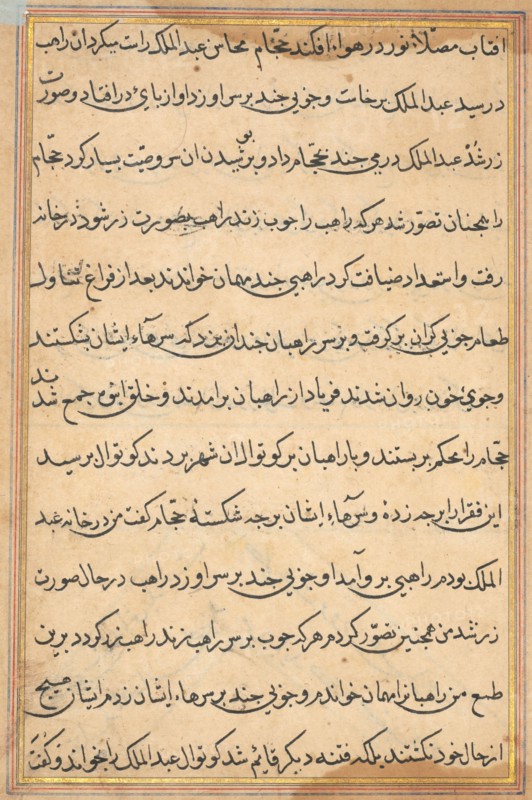 افتاب مصلاء نور در هواء افکند حجّام محاسن عبد الملک راست میکرد ان راهب
در رسید عبد الملک برخاست و چوبی چند بر سر او زد او از پای در افتاد و صورت
زر شد عبد الملک درمی چند بحجّام داد و بر پوشیدن ان سر وصیّت بسیار کرد حجّام
را همچنان تصوّر شد هرکه راهب را چوب زند راهب بصورت زر شود در خانه
رفت و استعداد ضیافت کرد راهبی چند مهمان خواندند بعد از فراغ تناول
طعام چوبی کران بر کرفت و بر سر راهبان چندان بزد که سرهاء ایشان بشکستند
و جوی خون روان شدند فریاد از راهبان برامدند و خلق انبوه جمع شدند
حجّام را محکم بربستند و با راهبان بر کوتوال ان شهر بردند کوتوال پرسید
این فقرا را برچه زدهٔ و سرهاء ایشان برچه شکستهٔ حجّام کفت من در خانه عبد
الملک بودم راهبی بر وآمد او چوبی چند بر سر او زد راهب در حال صورت
زر شد من همچنین تصوّر کردم هرکه چوب بر سر راهب زند راهب زر کردد برین
طمع من راهبانرا مهمان خواندم و چوبی چند بر سرهاء ایشان زدم ایشان هیچ
از حال خود نکشتند بلکه فتنه دیکر قایم شد کوتوال عبد الملک را بخواند و کفت